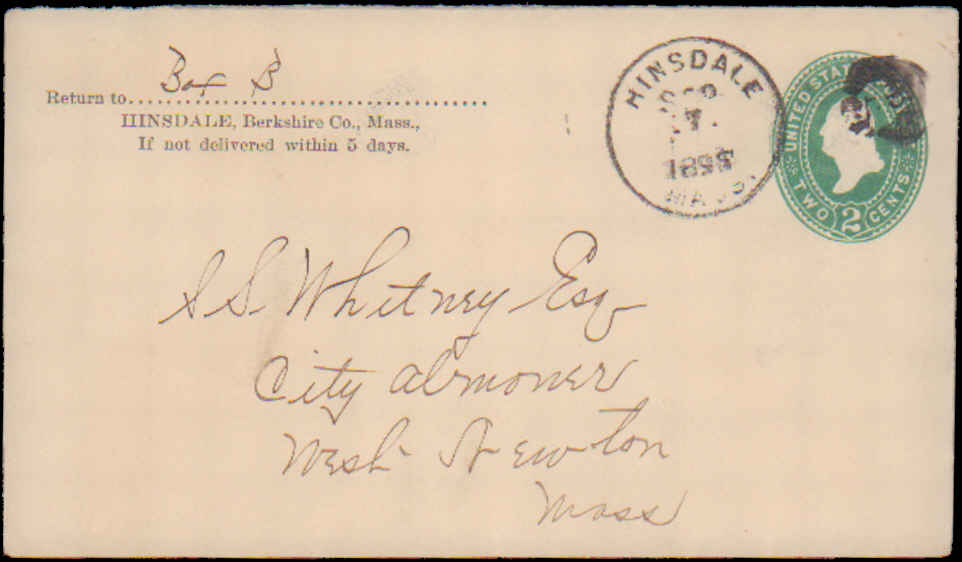 Box B
Return to
HINSDALE, Berkshire Co., Mass.,
If not delivered within 5 days.
HINSDALE
MASS.
UNITED STATES
TWO 2 CENTS
S S Whitney Esq
City Almoner
West Newton
Mass